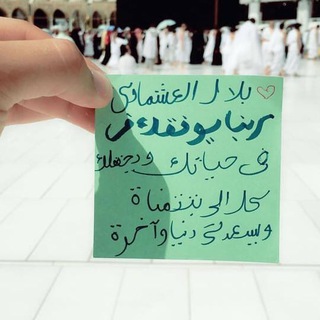 بلال العشماوي
ربنا يوفقك في
في حياتك ويحققلك
كل الي بتتمناة
ويسعدك دنيا وآخرة